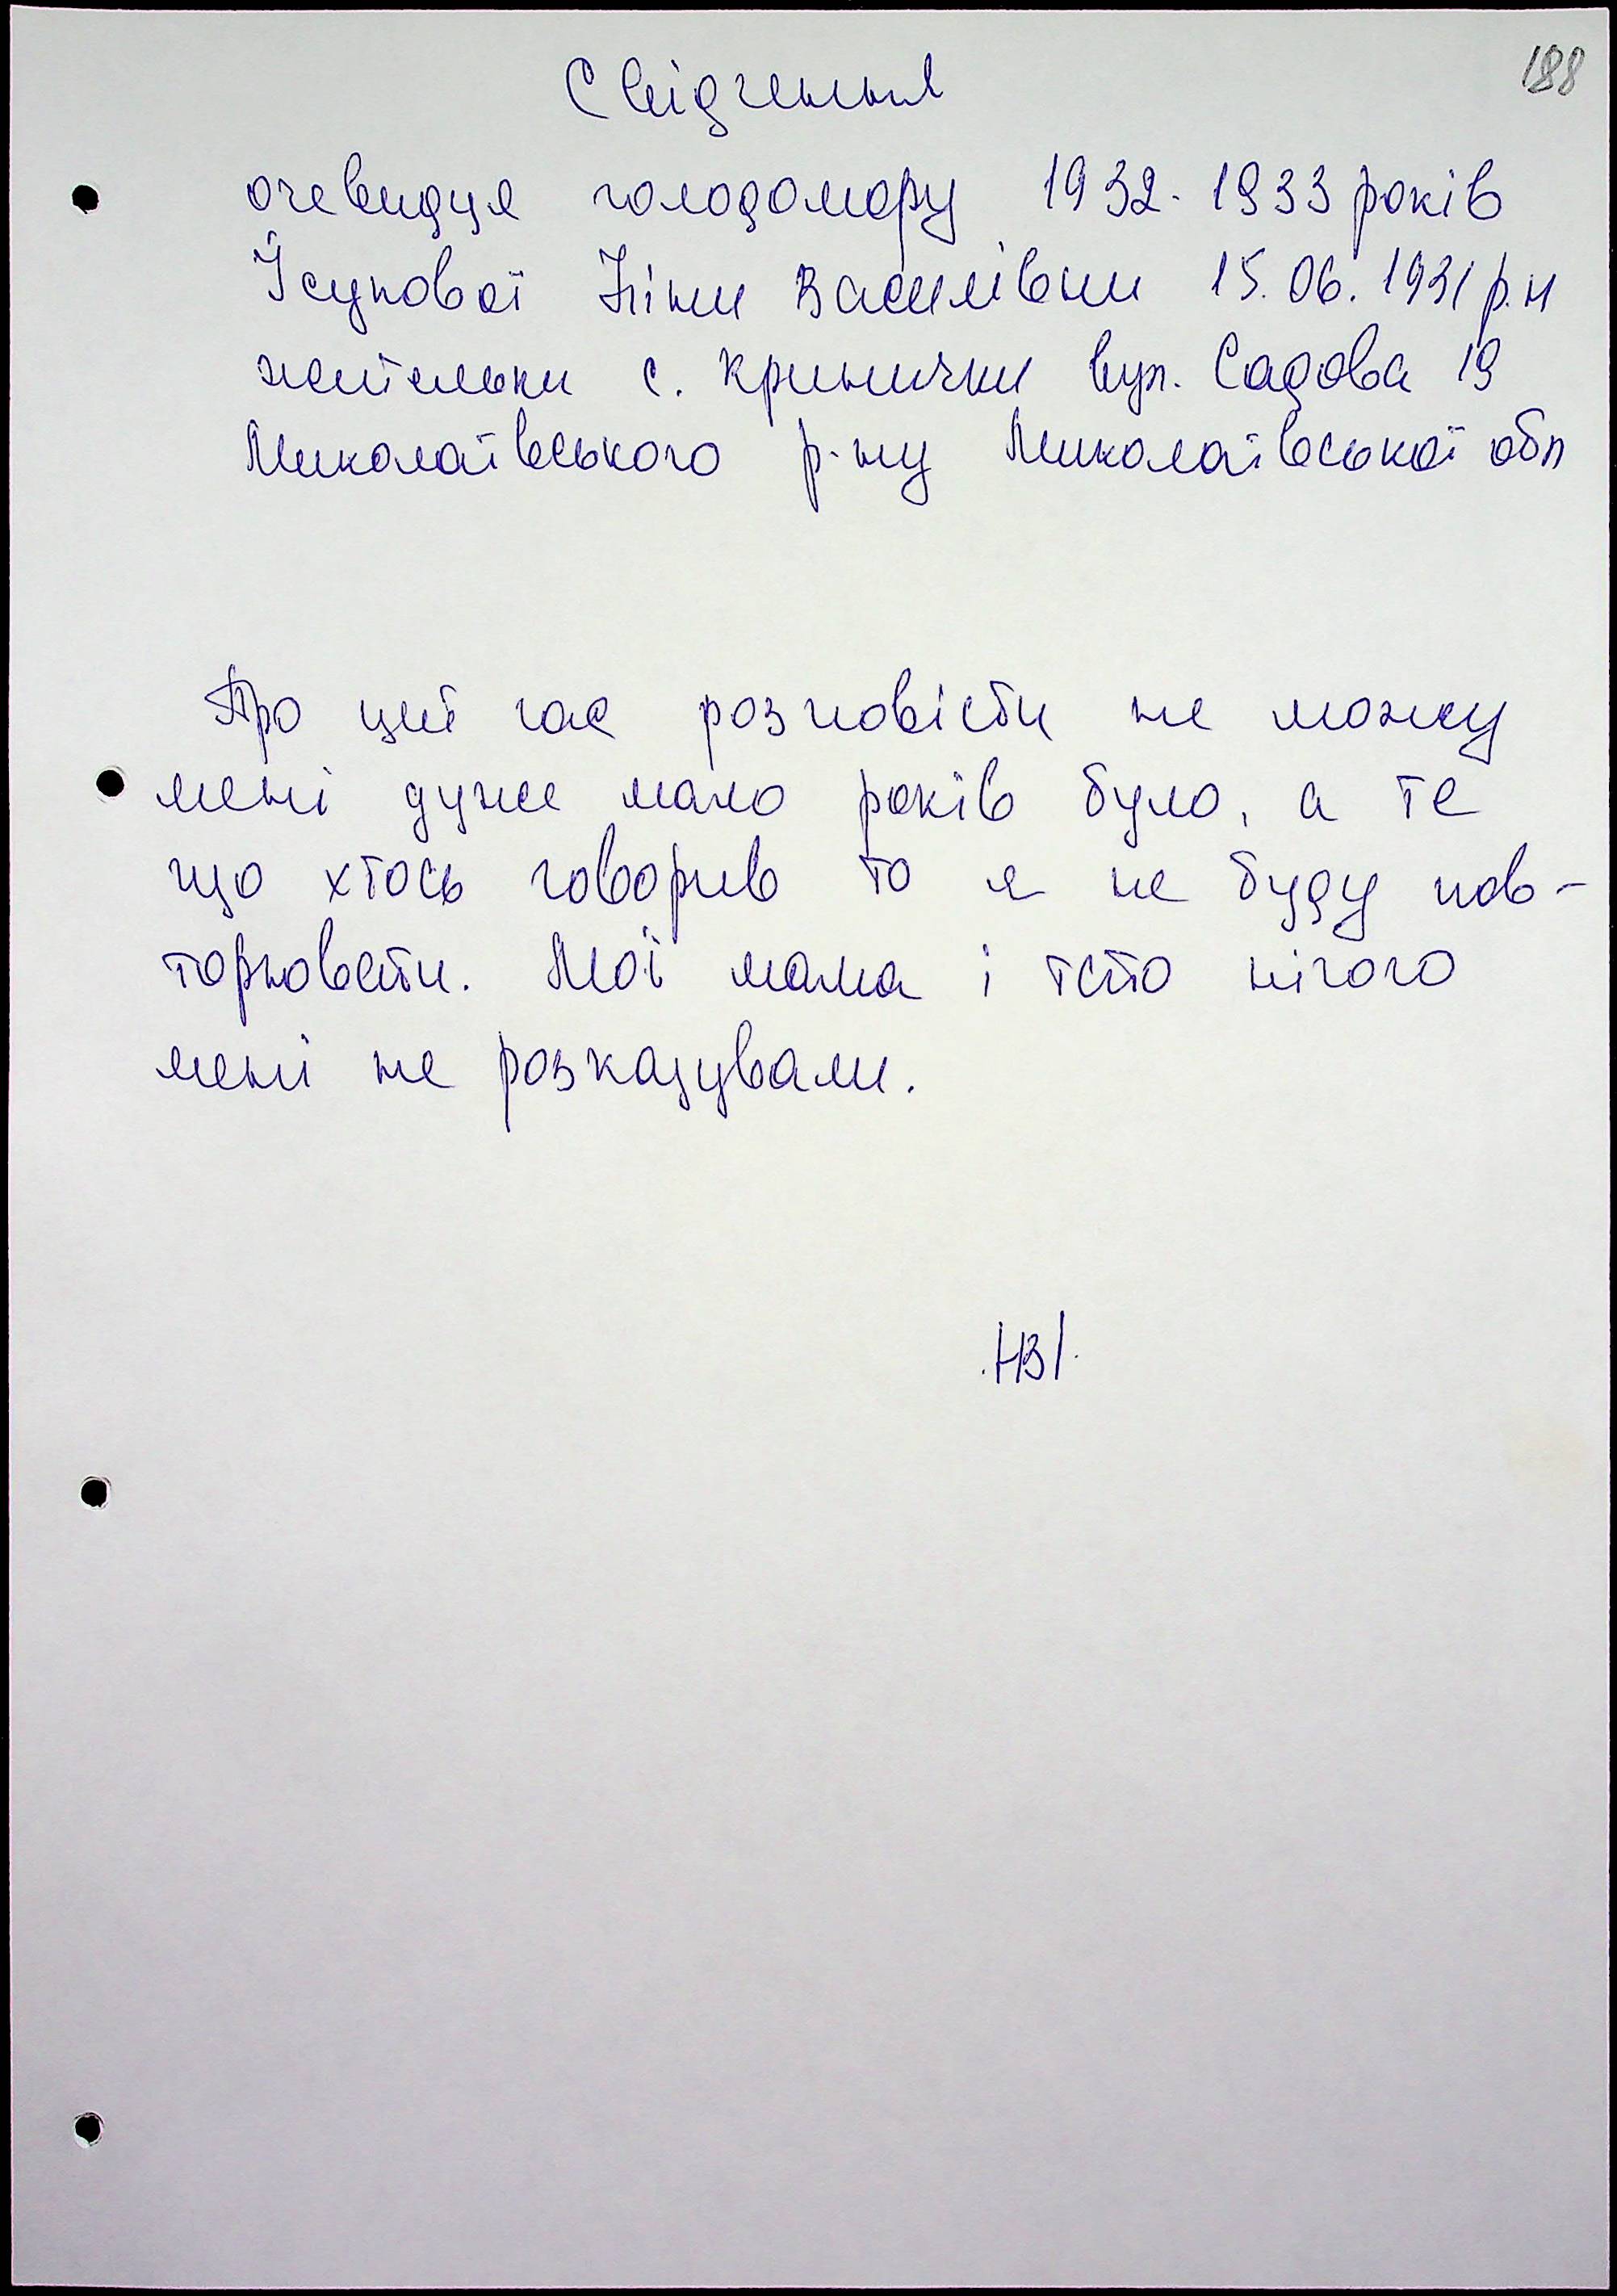 188
Свідчення
очевидця голодомору 1932-1933 років
Ісупової Ніни Василівни 15.06.1931 р.н
жительки с. Кринички вул. Садова 19
Миколаївського р-ну Миколаївської обл
Про цей час розповісти не можу
мені дуже мало років було, а те
що хтось говорив то я не буду пов-
торювати. Мої мама і тато нічого
мені не розказували.
НВІ.